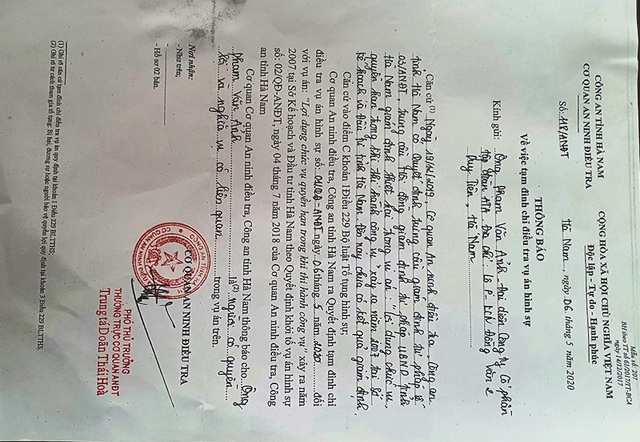 Mẫu số: 207
BH theo TT số 61/2017/TT-BCA
ngày 14/12/2017
CÔNG AN TỈNH HÀ NAM
CƠ QUAN AN NINH ĐIỀU TRA
CỘNG HÒA XÃ HỘI CHỦ NGHĨA VIỆT NAM
Độc lập - Tự do - Hạnh phúc
Số: 118/ANĐT
Hà Nam, ngày 06 tháng 5 năm 2020
THÔNG BÁO
Về việc tạm đình chỉ điều tra vụ án hình sự
Kính gửi: Ông Phạm Văn Ảnh - đại diện Công ty Cổ phần
Tập đoàn ATA. Địa chỉ: Lô P - KCN Đồng Văn 2
Duy Tiên, Hà Nam
Căn cứ (1) Ngày 19/12/2019, Cơ quan An ninh điều tra, Công an
tỉnh Hà Nam có Quyết định trưng cầu giám định tư pháp số
03/ANĐT, trưng cầu Hội đồng giám định tư pháp UBND tỉnh
Hà Nam giám định thiệt hại trong vụ án: Lợi dụng chức vụ
quyền hạn trong khi thi hành công vụ xảy ra năm 2007 tại Sở
Kế hoạch và Đầu tư tỉnh Hà Nam. Đến nay chưa có kết quả giám định.
Căn cứ vào điểm C khoản 1 Điều 229 Bộ luật Tố tụng hình sự;
Cơ quan An ninh điều tra, Công an tỉnh Hà Nam ra Quyết định tạm đình chỉ
điều tra vụ án hình sự số: 01/QĐ-ANĐT ngày 06 tháng 5 năm 2020 đối
với vụ án: "Lợi dụng chức vụ quyền hạn trong khi thi hành công vụ" xảy ra năm
2007 tại Sở Kế hoạch và Đầu tư tỉnh Hà Nam theo Quyết định khởi tố vụ án hình sự
số: 02/QĐ-ANĐT, ngày 04 tháng 7 năm 2018 của Cơ quan An ninh điều tra, Công
an tỉnh Hà Nam
Cơ quan Cơ quan An ninh điều tra, Công an tỉnh Hà Nam thông báo cho: Ông
Phạm Văn Ảnh là (2) người có quyền
lợi và nghĩa vụ có liên quan trong vụ án trên.
Nơi nhận:
- Như trên;
- Hồ sơ 02 bản.
CƠ QUAN AN NINH ĐIỀU TRA
PHÓ THỦ TRƯỞNG
THƯỜNG TRỰC CƠ QUAN ANĐT
Trung tá Doãn Thái Hoà
(1) Ghi rõ căn cứ tạm đình chỉ điều tra vụ án quy định tại khoản 1 Điều 229 BLTTHS;
(2) Ghi rõ tư cách tham gia tố tụng: Bị hại, đương sự hoặc người bảo vệ quyền lợi quy định tại khoản 3 Điều 229 BLTTHS.